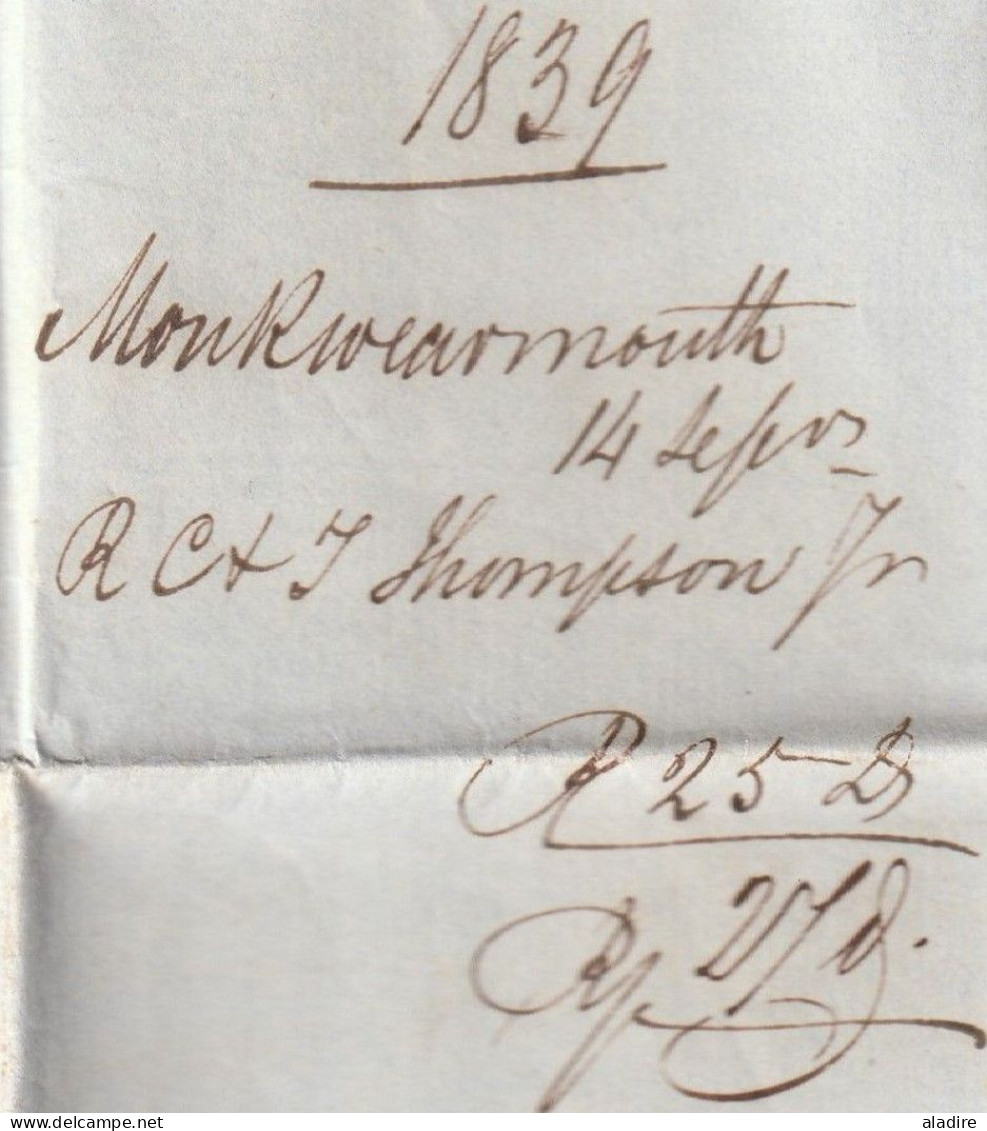 1839
Monkwearmouth
14 Sepbr
R C & T Thompson Jn
R 25 D
Rp 27 d.
www.delcampe.net
aladire